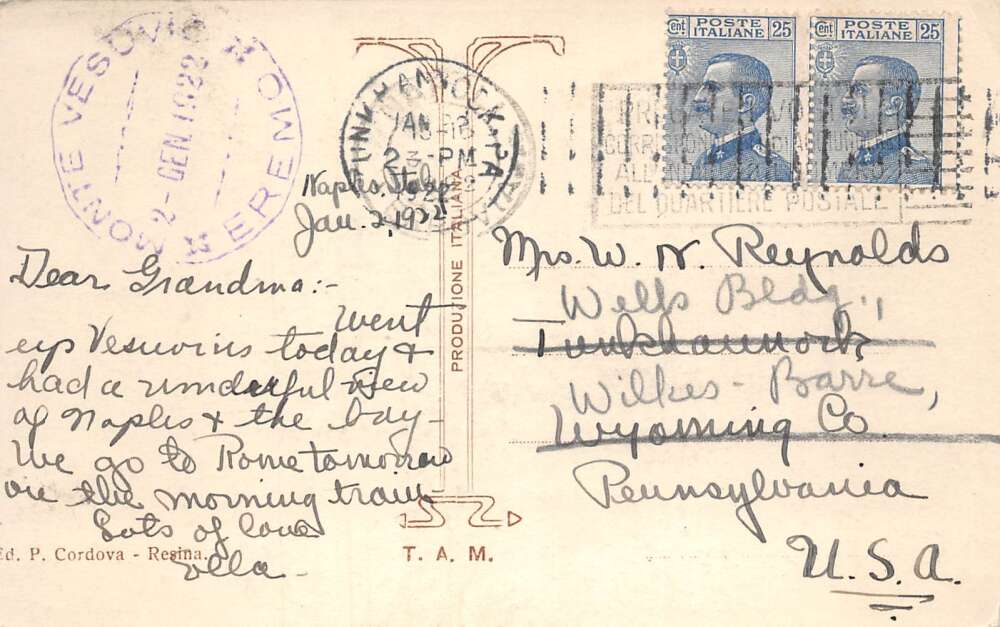 MONTE VESUVIO
2-GEN.1922
EREMO
TUNKHANNOCK, PA
JAN 18
3-PM
Cent POSTE ITALIANE 25
Cent POSTE ITALIANE 25
DEL QUARTIERE POSTALE
Naples, Italy
Jan. 2, 1922
Dear Grandma:-
Went
up Vesuvius today &
had a wonderful view
of Naples & the bay-
We go to Rome tomorrow
on the morning train-
Lots of love
Ella-
PRODUZIONE ITALIANA
Mrs. W. N. Reynolds
Wells Bldg.,
Tunkhannock
Wilkes-Barre,
Wyoming Co.
Pennsylvania
U.S.A.
Ed. P. Cordova - Resina.
T. A. M.